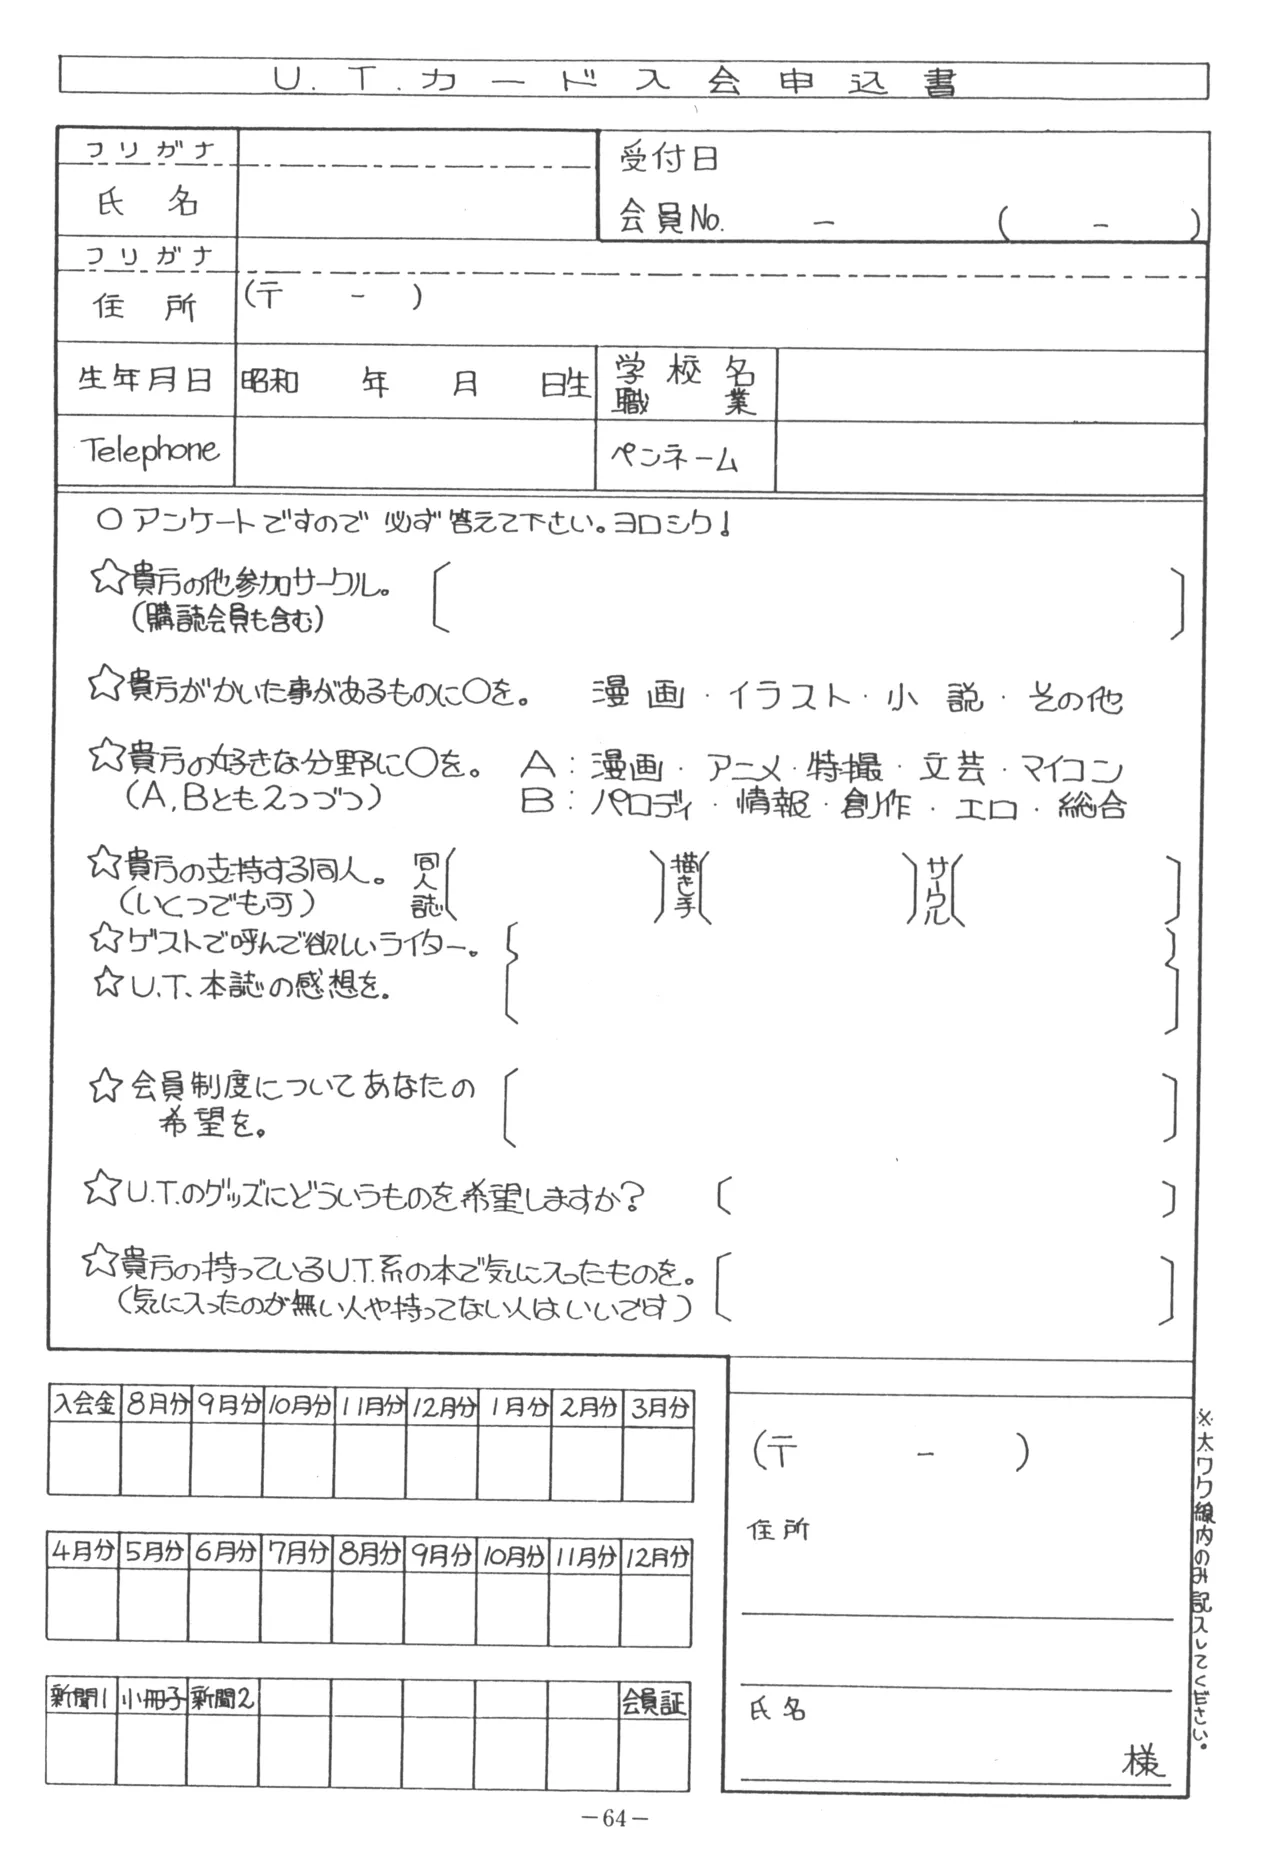 U.T.カード入会申込書
フリガナ
氏名
受付日
会員No. － ( － )
フリガナ
住所
(〒 － )
生年月日 昭和 年 月 日生
学校名
職業
Telephone
ペンネーム
○アンケートですので必ず答えて下さい。ヨロシク!
☆貴方の他参加サークル。
(購読会員も含む)
☆貴方がかいた事があるものに○を。 漫画・イラスト・小説・その他
☆貴方の好きな分野に○を。 A:漫画・アニメ・特撮・文芸・マイコン
(A,Bとも2つづつ) B:パロディ・情報・創作・エロ・総合
☆貴方の支持する同人。 同人誌( ) 描き手( ) サークル( )
(いくつでも可)
☆ゲストで呼んで欲しいライター。
☆U.T.本誌の感想を。
☆会員制度についてあなたの
希望を。
☆U.T.のグッズにどういうものを希望しますか?
☆貴方の持っているU.T.系の本で気に入ったものを。
(気に入ったのが無い人や持ってない人はいいです)
入会金 8月分 9月分 10月分 11月分 12月分 1月分 2月分 3月分
4月分 5月分 6月分 7月分 8月分 9月分 10月分 11月分 12月分
新聞1 小冊子 新聞2 会員証
(〒 － )
住所
氏名
様
※太ワク線内のみ記入してください。
－64－